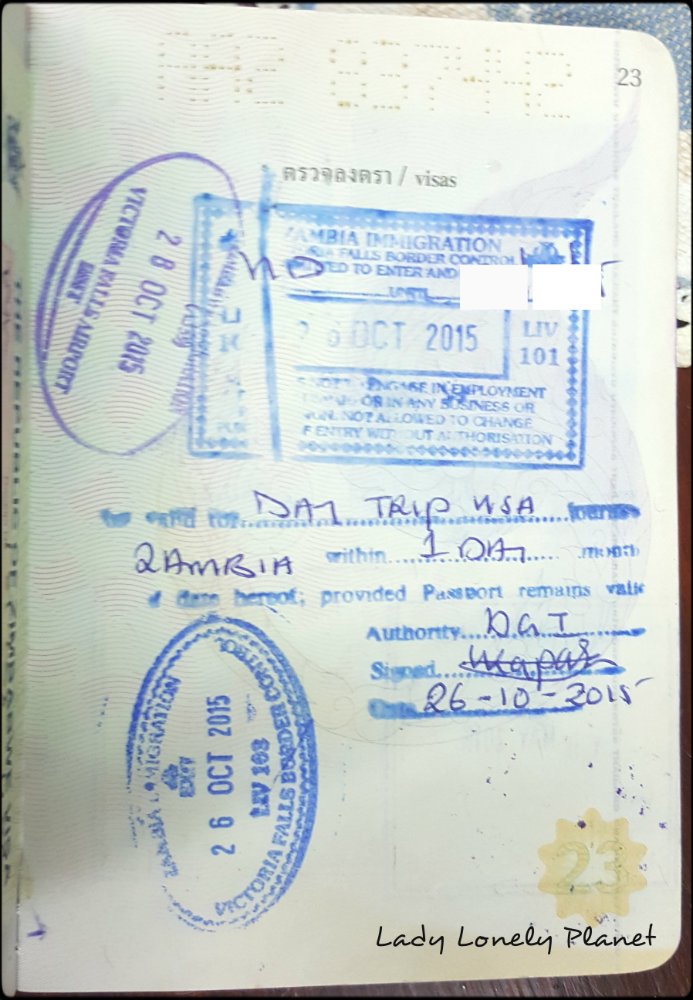 23
ตรวจลงตรา / visas
VICTORIA FALLS AIRPORT
28 OCT 2015
ZAMBIA IMMIGRATION
FALLS BORDER CONTROL
TO ENTER AND
UNTIL
26 OCT 2015
LIV
101
ENGAGE IN EMPLOYMENT
OR IN ANY BUSINESS OR
NOT ALLOWED TO CHANGE
OF ENTRY WITHOUT AUTHORISATION
valid for DAY TRIP VISA
ZAMBIA within 1 DAY month
date hereof; provided Passport remains valid
Authority DGI
Signed
Date 26-10-2015
ZAMBIA IMMIGRATION
26 OCT 2015
LIV 103
VICTORIA FALLS BORDER CONTROL
23
Lady Lonely Planet